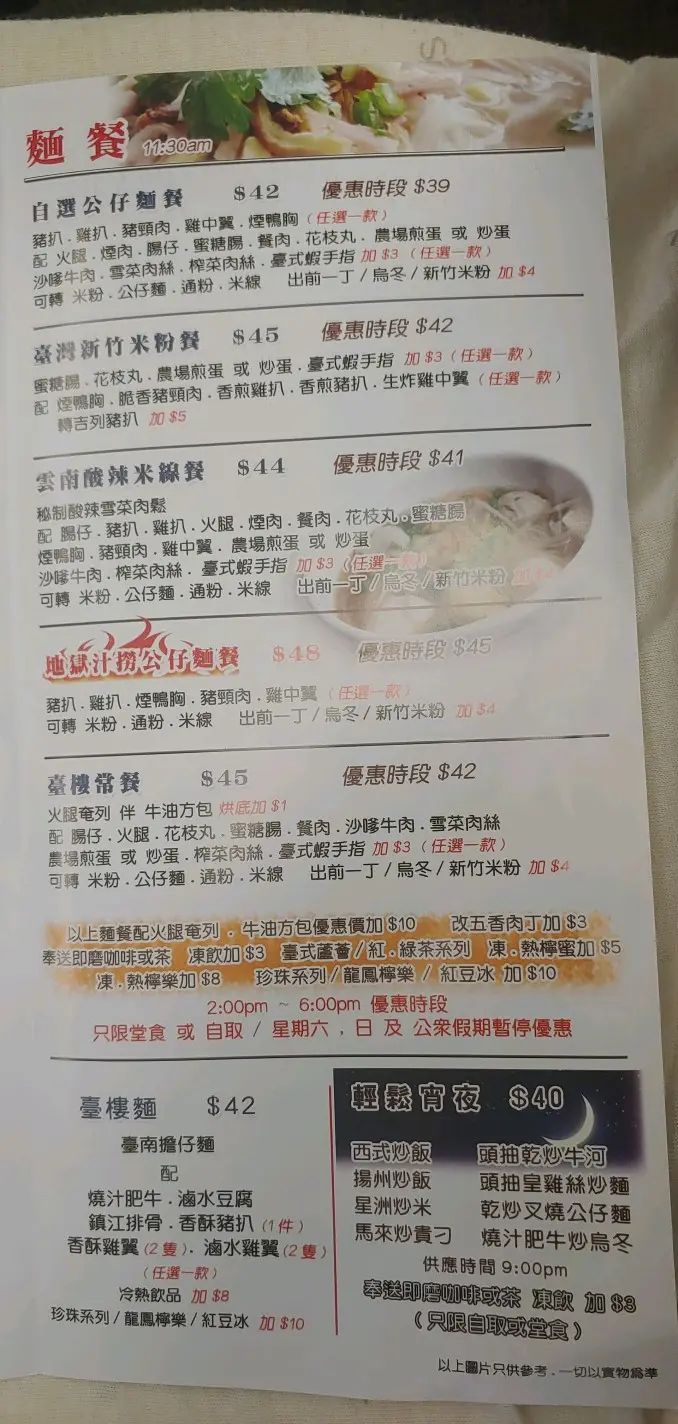 麵餐 11:30am
自選公仔麵餐 $42 優惠時段 $39
豬扒.雞扒.豬頸肉.雞中翼.煙鴨胸(任選一款)
配 火腿.煙肉.腸仔.蜜糖腸.餐肉.花枝丸.農場煎蛋 或 炒蛋
沙嗲牛肉.雪菜肉絲.榨菜肉絲.臺式蝦手指 加$3(任選一款)
可轉 米粉.公仔麵.通粉.米線 出前一丁/烏冬/新竹米粉 加$4
臺灣新竹米粉餐 $45 優惠時段 $42
蜜糖腸.花枝丸.農場煎蛋 或 炒蛋.臺式蝦手指 加$3(任選一款)
配 煙鴨胸.脆香豬頸肉.香煎雞扒.香煎豬扒.生炸雞中翼(任選一款)
轉吉列豬扒 加$5
雲南酸辣米線餐 $44 優惠時段 $41
秘制酸辣雪菜肉鬆
配 腸仔.豬扒.雞扒.火腿.煙肉.餐肉.花枝丸.蜜糖腸
煙鴨胸.豬頸肉.雞中翼.農場煎蛋 或 炒蛋
沙嗲牛肉.榨菜肉絲.臺式蝦手指 加$3(任選一款)
可轉 米粉.公仔麵.通粉.米線 出前一丁/烏冬/新竹米粉 加$4
地獄汁撈公仔麵餐 $48 優惠時段 $45
豬扒.雞扒.煙鴨胸.豬頸肉.雞中翼(任選一款)
可轉 米粉.通粉.米線 出前一丁/烏冬/新竹米粉 加$4
臺樓常餐 $45 優惠時段 $42
火腿奄列 伴 牛油方包 烘底加$1
配 腸仔.火腿.花枝丸.蜜糖腸.餐肉.沙嗲牛肉.雪菜肉絲
農場煎蛋 或 炒蛋.榨菜肉絲.臺式蝦手指 加$3(任選一款)
可轉 米粉.公仔麵.通粉.米線 出前一丁/烏冬/新竹米粉 加$4
以上麵餐配火腿奄列.牛油方包優惠價加$10 改五香肉丁加$3
奉送即磨咖啡或茶 凍飲加$3 臺式蘆薈/紅.綠茶系列 凍.熱檸蜜加$5
凍.熱檸樂加$8 珍珠系列/龍鳳檸樂/紅豆冰 加$10
2:00pm ~ 6:00pm 優惠時段
只限堂食 或 自取 / 星期六,日 及 公眾假期暫停優惠
臺樓麵 $42
臺南擔仔麵
配
燒汁肥牛.滷水豆腐
鎮江排骨.香酥豬扒(1件)
香酥雞翼(2隻).滷水雞翼(2隻)
(任選一款)
冷熱飲品 加$8
珍珠系列/龍鳳檸樂/紅豆冰 加$10
輕鬆宵夜 $40
西式炒飯 頭抽乾炒牛河
揚州炒飯 頭抽皇雞絲炒麵
星洲炒米 乾炒叉燒公仔麵
馬來炒貴刁 燒汁肥牛炒烏冬
供應時間 9:00pm
奉送即磨咖啡或茶 凍飲 加$3
(只限自取或堂食)
以上圖片只供參考.一切以實物為準